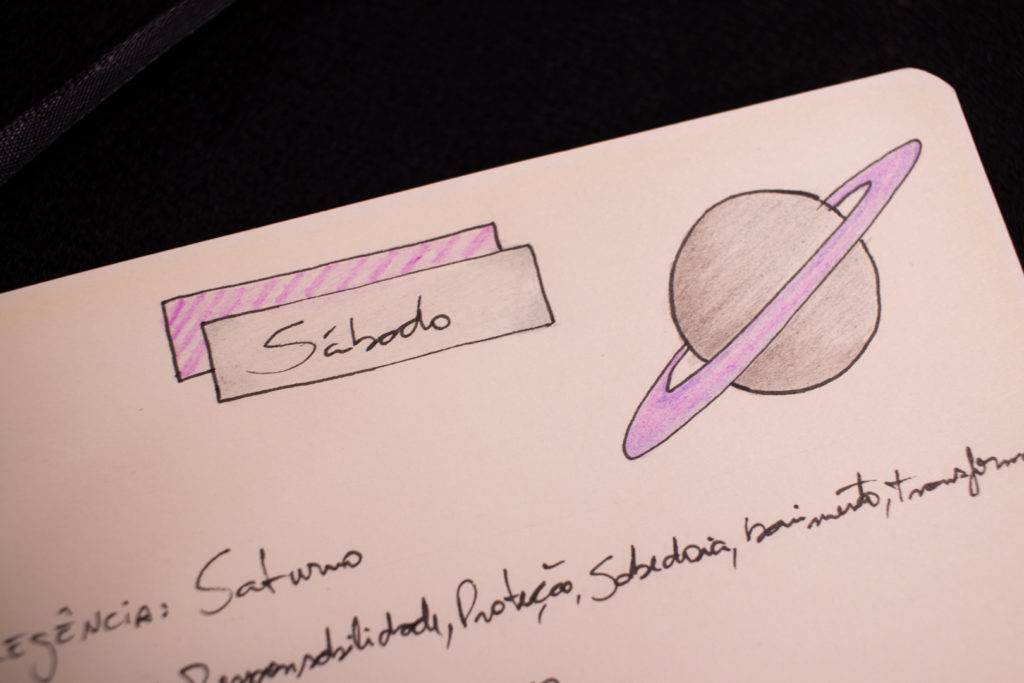 Sábado
REGÊNCIA: Saturno
Responsabilidade, Proteção, Sabedoria, banimento, transform